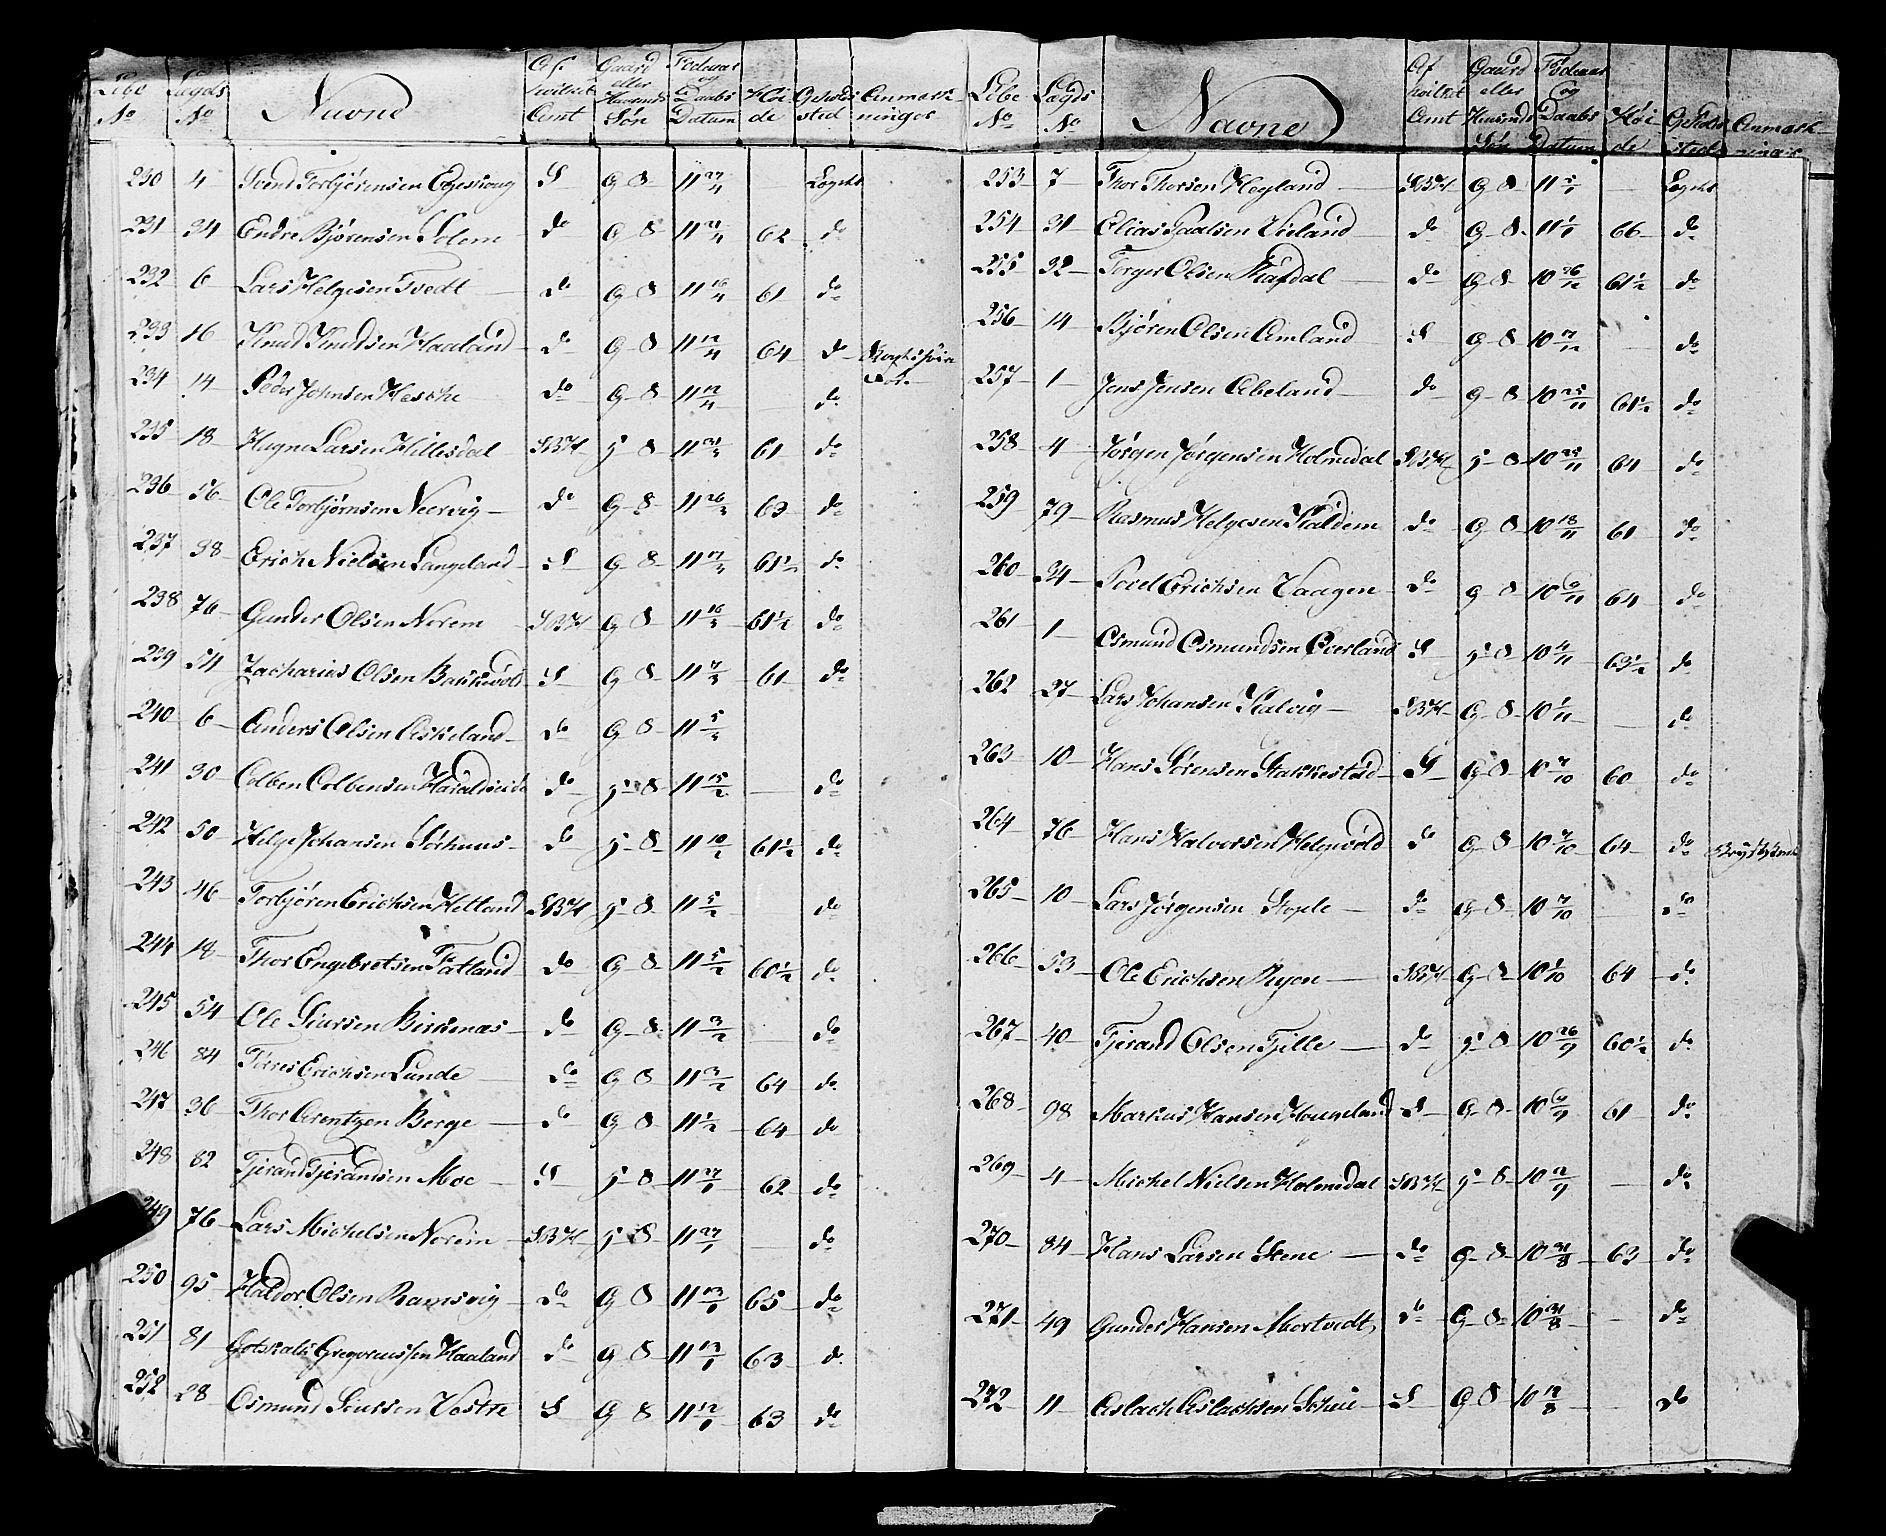 Løbe No Lægds No Navne Af hvilket Amt Gaard eller Huusmds Søn Fødeaar og Daabs Datum Høide Opholdssted Anmærkninger
230 4 Svend Torbjørensen S G 8 11 27/4 Lægdet
231 34 Endre Bjørensen Solem do G 8 11 21/4 62 do
232 6 Lars Helgesen Tvedt do G 8 11 16/4 61 do
233 16 Knud Knudsen Haaland do G 8 11 12/4 64 do
234 14 Peder Johnsen Hesche do G 8 11 12/4 do
235 18 Hagne Larsen Hillesdal SBH g 8 11 31/3 61 do
236 56 Ole Torbjørnsen Neervig do G 8 11 26/3 63 do
237 38 Erich Nielsen Langeland S G 8 11 17/3 61½ do
238 76 Gunder Olsen Norem SBH G 8 11 16/3 61½ do
239 54 Zacharias Olsen Bakkevold S G 8 11 7/3 61 do
240 6 Anders Olsen Askeland do G 8 11 5/3
241 30 Colben Colbensen do g 8 11 15/2 do
242 50 Helge Johansen Sørhuus do g 8 11 10/2 61½ do
243 46 Torbjøren Erichsen Hetland SBH g 8 11 5/2 do
244 18 Thor Engebretsen Fatland do G 8 11 5/2 60½ do
245 54 Ole Siursen Birkenæs do G 8 11 3/2 do
246 84 Tores Erichsen Lunde do G 8 11 3/2 64 do
247 36 Thor Arentzen Berge do G 8 11 1/2 64 do
248 82 Tjerand Tjerandsen Moe S g 8 11 27/1 62 do
249 76 Lars Michelsen Norem SBH g 8 11 27/1 do
250 95 Haldor Olsen Ramsvig do G 8 11 13/1 65 do
251 81 Gotskalk Gregoriussen Haaland do G 8 11 13/1 63 do
252 28 Osmund Siursen Vestre S G 8 11 12/1 63 do
Løbe No Lægds No Navne Af hvilket Amt Gaard eller Huusmds Søn Fødeaar og Daabs Datum Høide Opholdssted Anmærkninger
253 7 Thor Thorsen Høyland SBH G 8 11 5/1 Lægdet
254 31 Elias Paalsen Visland do G 8 11 1/1 66 do
255 32 Torger Olsen do G 8 10 26/12 61½ do
256 14 Bjøren Olsen Amland S G 8 10 7/12 do
257 1 Jens Jensen Abeland do G 8 10 25/11 61½ do
258 4 Jørgen Jørgensen Holmedal SBH g 8 10 25/11 64 do
259 79 Rasmus Helgesen do G 8 10 18/11 61 do
260 34 Poul Erichsen Vaagen do G 8 10 6/11 64 do
261 1 Osmund Osmundsen S g 8 10 4/11 63½ do
262 27 Lars Johansen Kalvig SBH G 8 10 1/11 do
263 10 Hans Sørensen Stakkestad S G 8 10 7/10 60 do
264 76 Hans Halvorsen Helgevold do G 8 10 7/10 64 do
265 10 Lars Jørgensen Stople do G 8 10 7/10 do
266 53 Ole Erichsen SBH G 8 10 1/10 64 do
267 40 Tjerand Olsen Tjelle do g 8 10 26/9 60½ do
268 98 Markus Hansen Hougeland S G 8 10 6/9 61 do
269 4 Michel Nielsen Holmedal SBH g 8 10 2/9 do
270 84 Hans Larsen Stene do G 8 10 31/8 63 do
271 49 Gunder Hansen Mortvedt do G 8 10 31/8 do
272 11 Aslach Aslachsen S G 8 10 12/8 do